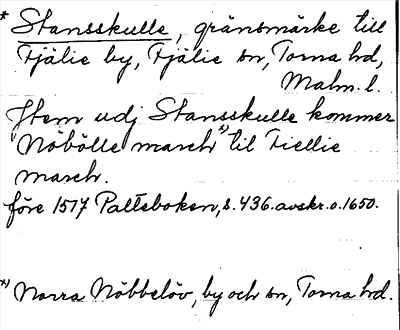 * Stansskulle, gränsmärke till
Fjälie by, Fjälie sn, Torna hd,
Malm. l.
Jtem udj Stansskulle kommer
Nöbölle march *) til Fiellie
march.
före 1517 Palteboken, s. 436. avskr. o. 1650.
*) Norra Nöbbelöv, by och sn, Torna hd.